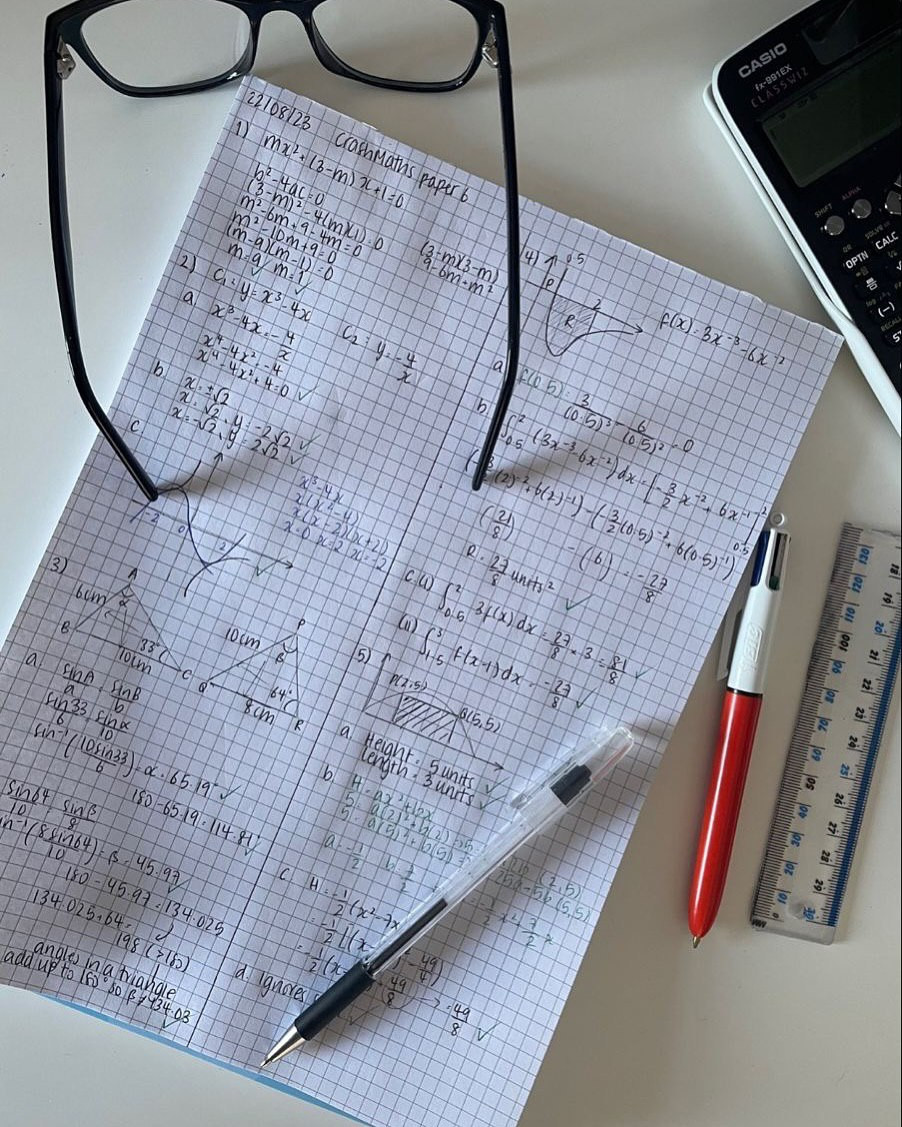 22/08/23 CrashMaths paper 6
1) mx² + (3-m)x + 1 = 0
b² - 4ac = 0
(3-m)² - 4(m)(1) = 0
m² - 6m + 9 - 4m = 0
m² - 10m + 9 = 0
(m-9)(m-1) = 0
m = 9 ✓ m = 1 ✓
(3-m)(3-m)
9 - 6m + m²
2) C₁: y = x³ - 4x
C₂: y = -4/x
a x³ - 4x = -4/x
x⁴ - 4x² = -4
x⁴ - 4x² + 4 = 0 ✓
b x = ±√2
x = √2, y = -2√2 ✓
x = -√2, y = 2√2 ✓
c
-2 0 2 ✓
x³ - 4x
x(x² - 4)
x(x-2)(x+2)
x=0 x=2 x=-2
3) A
6cm α
B 33° C
10cm
P
10cm β
Q 64° R
8cm
a. sinA/a = sinB/b
sin33/6 = sinα/10
sin⁻¹(10sin33/6) = α = 65.19° ✓
180 - 65.19 = 114.81 ✓
sin64/10 = sinβ/8
(8sin64/10) = β = 45.97 ✓
180 - 45.97 = 134.025
134.025 + 64 =
198 (>180)
angles in a triangle
add up to 180° so β ≠ 134.03 ✓
4) 0.5
P 2
R
f(x) = 3x⁻³ - 6x⁻²
a f(0.5) = 3/(0.5)³ - 6/(0.5)² = 0
b. ∫ 2 0.5 (3x⁻³ - 6x⁻²) dx = [-3/2 x⁻² + 6x⁻¹] 2 0.5
(2)⁻² + 6(2)⁻¹) - (3/2(0.5)⁻² + 6(0.5)⁻¹)
(21/8) - (6) = -27/8
R = 27/8 units² ✓
c. (i) ∫ 2 0.5 3f(x) dx = 27/8 × 3 = 81/8 ✓
(ii) ∫ 3 1.5 f(x-1) dx = -27/8 ✓
5)
A(2,5)
B(5,5)
a. Height = 5 units ✓
Length = 3 units ✓
b. H = ax² + bx
a(2)² + b(2)
5 = a(5)² + b(5)
(2,5)
(5,5)
a = -1/2 b = 7/2
c. H = -1/2 (x² - 7x
= -1/2 [(x
49/4)
49/8
= 49/8 ✓
d. Ignores
CASIO
fx-991EX
CLASSWIZ
SHIFT ALPHA
OPTN CALC
(-)